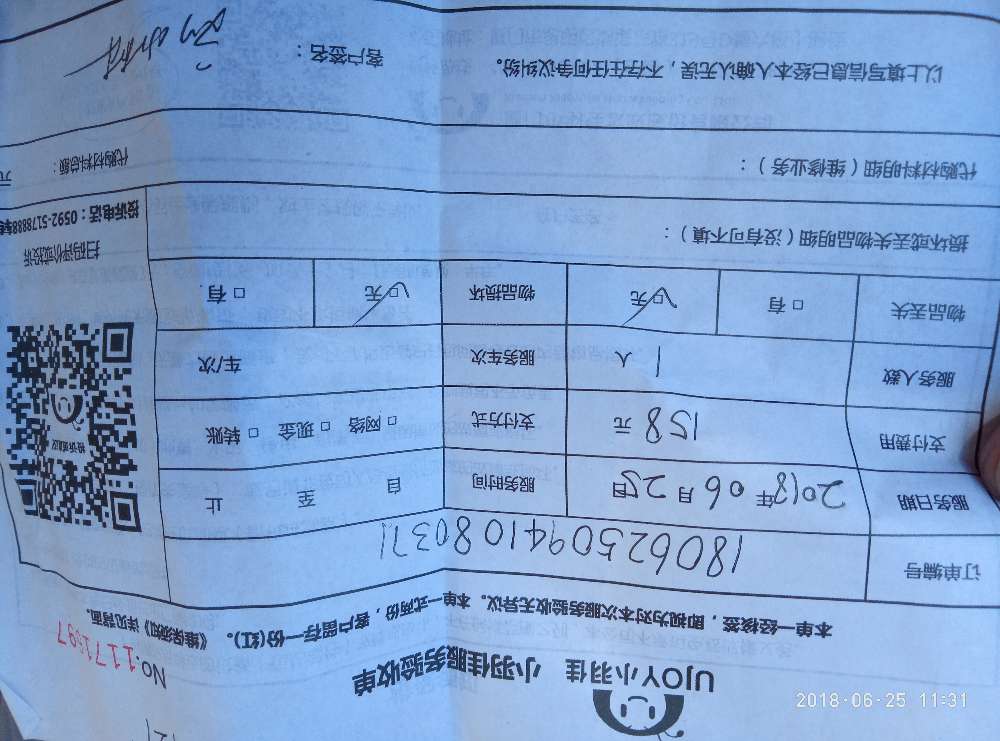 UJOY小羽佳 小羽佳服务验收单
NO.1171597
本单一经核签，即视为对本次服务验收无异议。本单一式两份，客户留存一份(红)。《维保须知》详见背面。
订单编号 18062509410803 71
服务日期 2018年06月25日 服务时间 自 至 止
支付费用 158元 支付方式 □网络 □现金 □转账
服务人数 1人 服务车次 车/次
物品丢失 □有 □无 物品损坏 □无 □有
扫码评价或投诉
投诉电话：0592-5178888转
损坏或丢失物品明细（没有可不填）：
代购材料明细（维修业务）： 代购材料总额： 元
以上填写信息已经本人确认无误，不存在任何争议纠纷。 客户签名：
2018-06-25 11:31